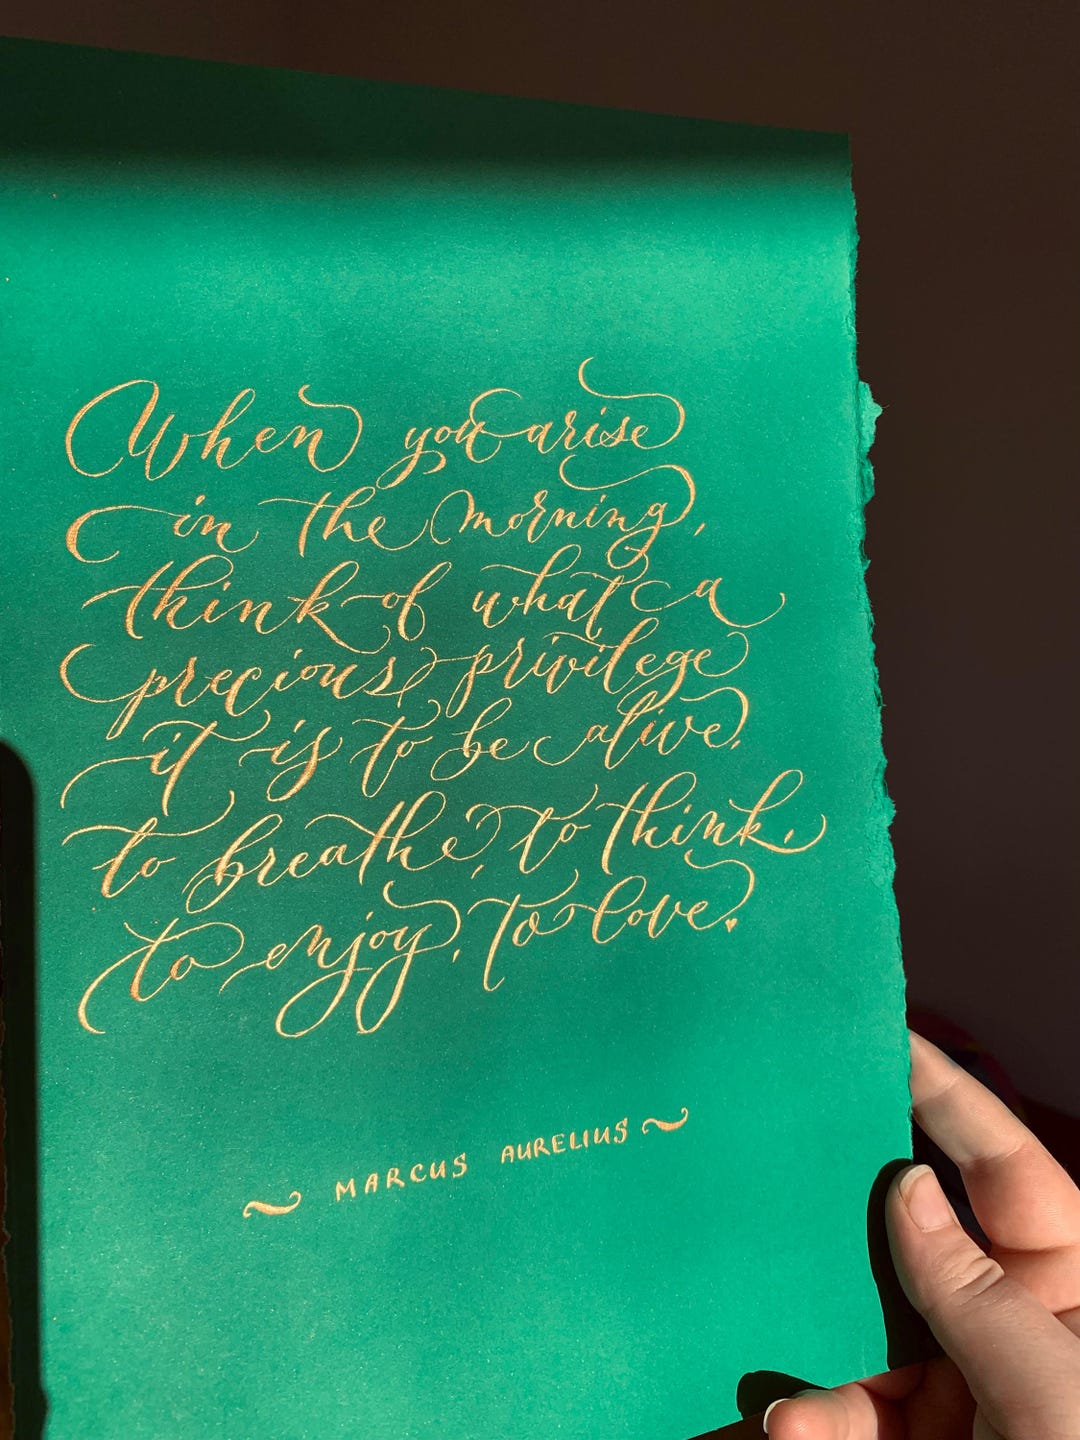 When you arise
in the morning,
think of what a
precious privilege
it is to be alive,
to breathe, to think,
to enjoy, to love.
MARCUS AURELIUS